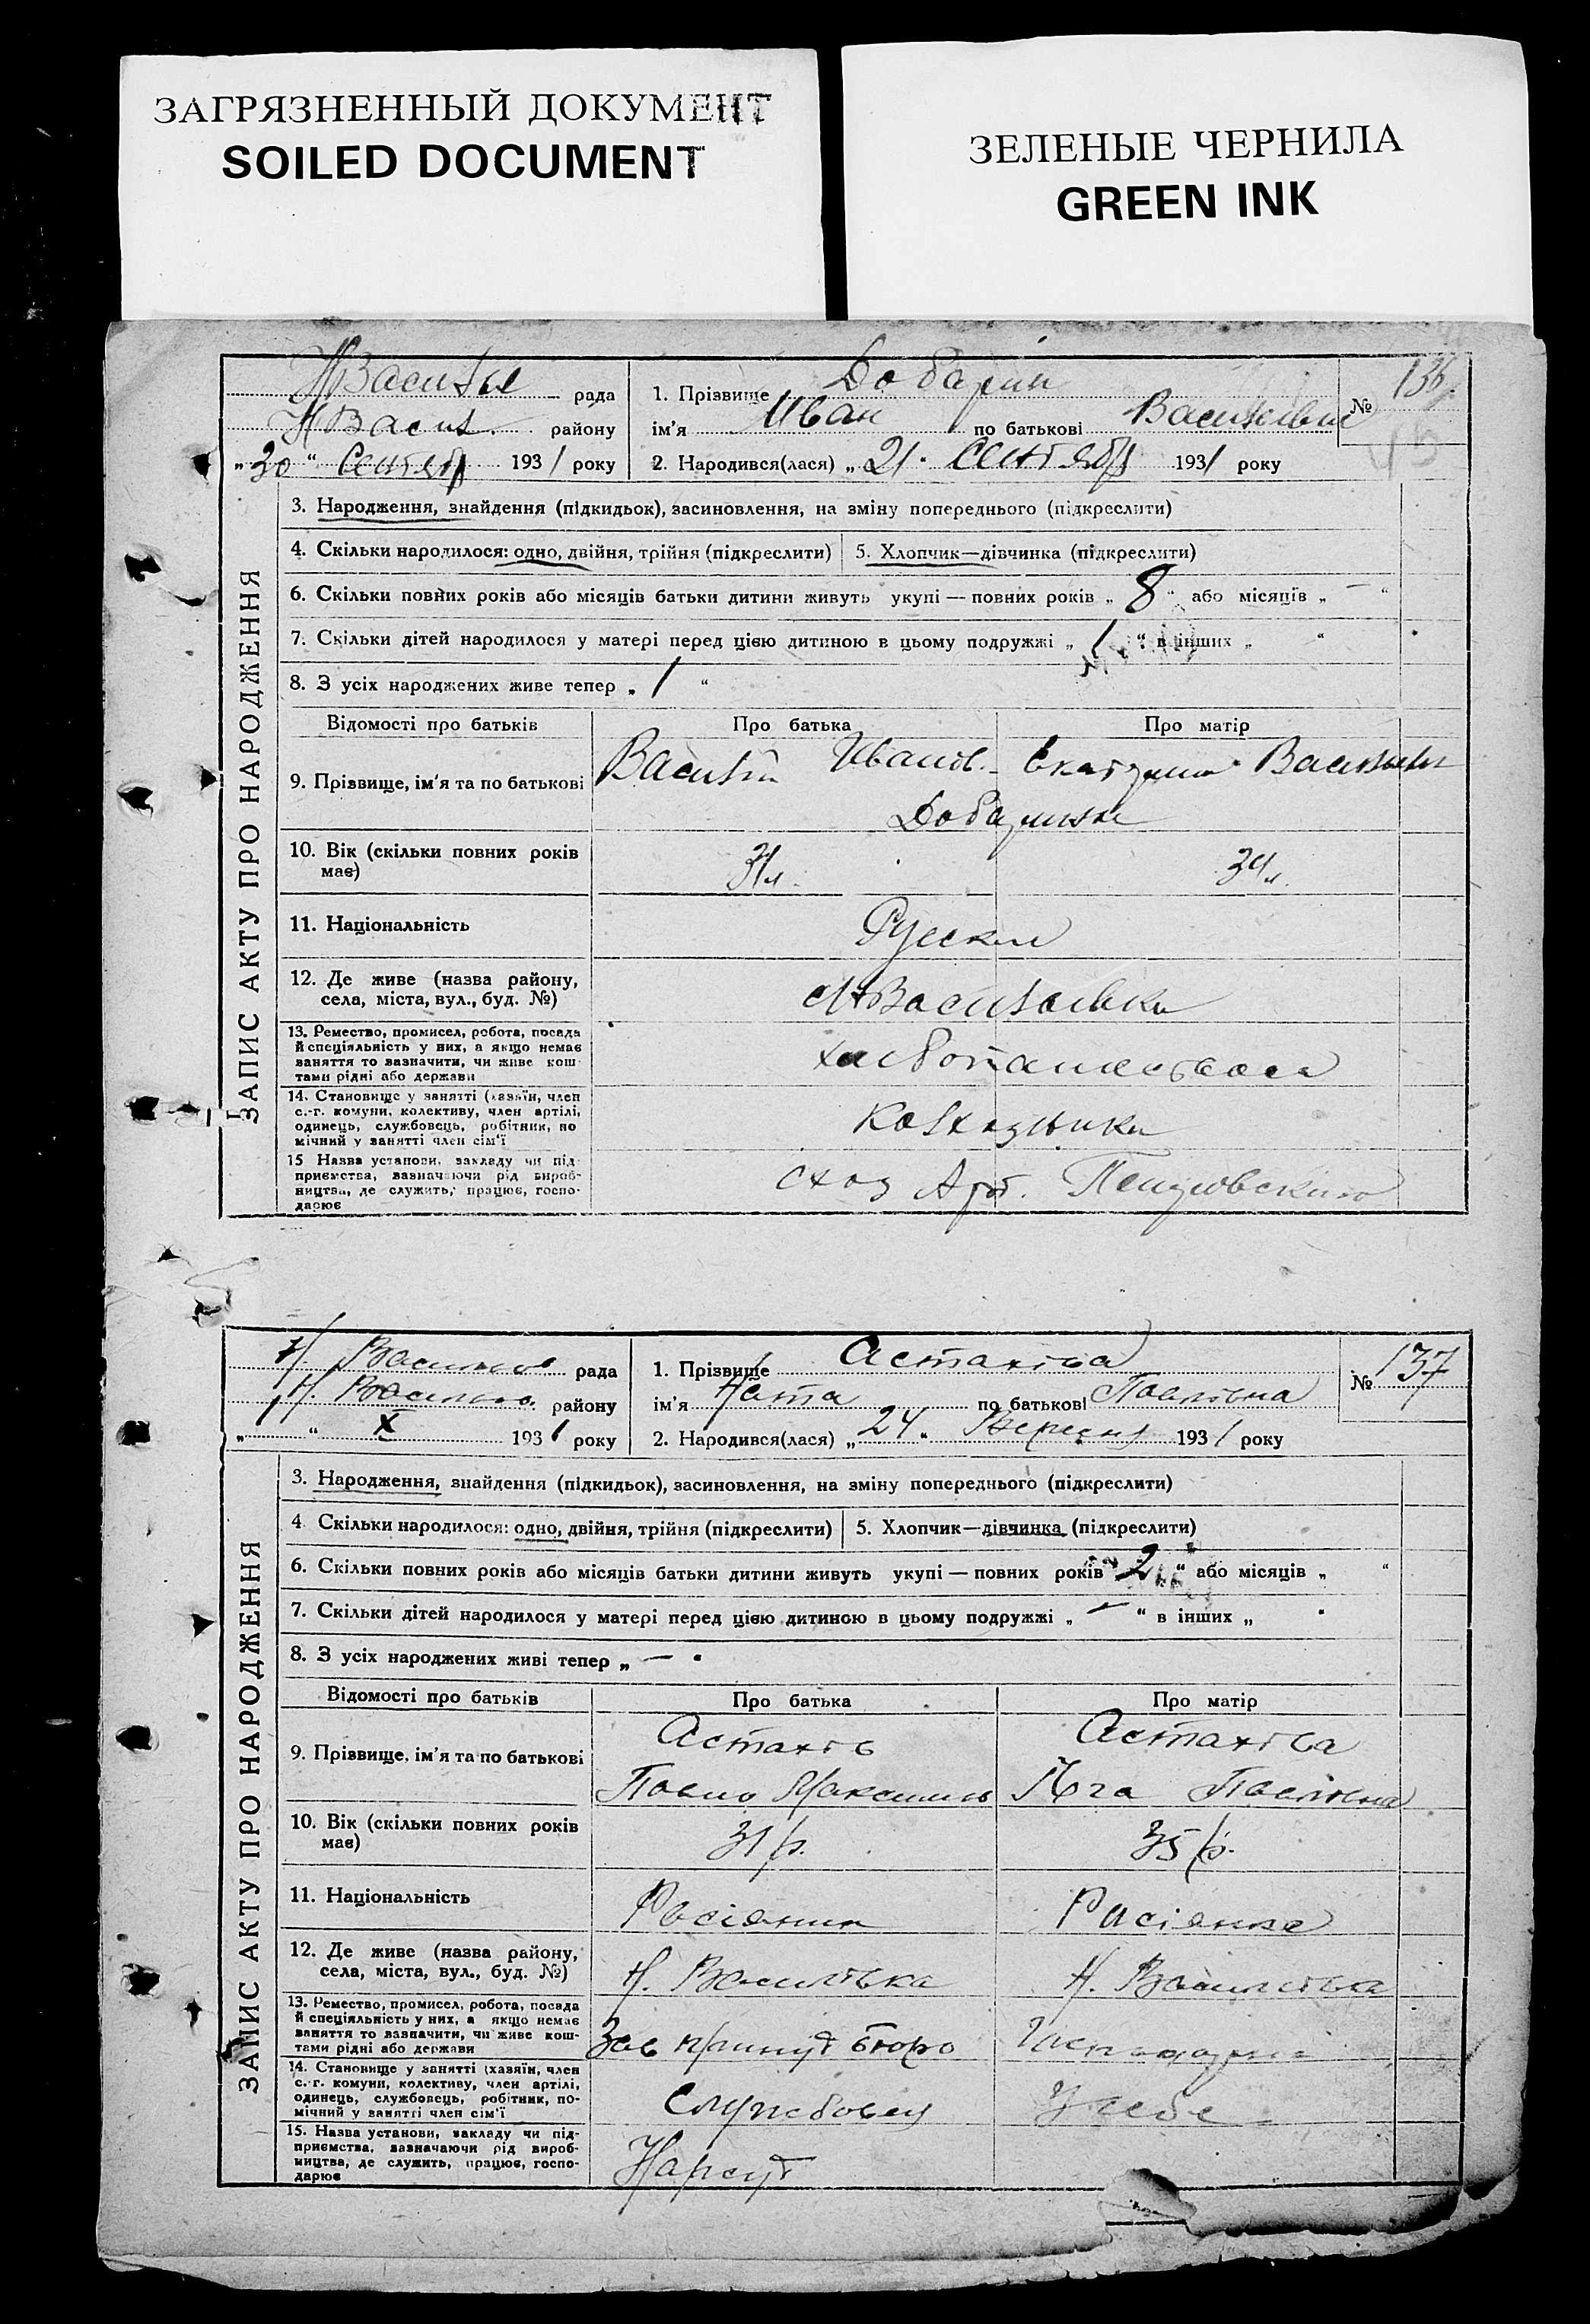 ЗАГРЯЗНЕННЫЙ ДОКУМЕНТ
SOILED DOCUMENT
ЗЕЛЕНЫЕ ЧЕРНИЛА
GREEN INK
рада
району
„30“ Сентяб 1931 року
1. Прізвище
ім'я Иван по батькові
№ 136
2. Народився(лася) „21. Сентяб 1931 року
ЗАПИС АКТУ ПРО НАРОДЖЕННЯ
3. Народження, знайдення (підкидьок), засиновлення, на зміну попереднього (підкреслити)
4. Скільки народилося: одно, двійня, трійня (підкреслити)
5. Хлопчик—дівчинка (підкреслити)
6. Скільки повних років або місяців батьки дитини живуть укупі — повних років „ 8 “ або місяців „ — “
7. Скільки дітей народилося у матері перед цією дитиною в цьому подружжі „ 1 “ в інших „ “
8. З усіх народжених живе тепер „ 1 “
Відомості про батьків
Про батька
Про матір
9. Прізвище, ім'я та по батькові
10. Вік (скільки повних років
має)
31 л.
34 л.
11. Національність
Русские
12. Де живе (назва району,
села, міста, вул., буд. №)
13. Ремество, промисел, робота, посада
й спеціяльність у них, а якщо немає
заняття то зазначити, чи живе кош-
тами рідні або держави
14. Становище у занятті (хазяїн, член
с.-г. комуни, колективу, член артілі,
одинець, службовець, робітник, по
мічний у занятті член сім'ї
15 Назва установи, закладу чи під-
приємства, вазначаючи рід вироб-
ництва, де служить, працює, госпо-
дарює
рада
району
„ “ X 1931 року
1. Прізвище Астахова
ім'я Ната по батькові Павлівна
№ 137
2. Народився(лася) „24“ Вересня 1931 року
ЗАПИС АКТУ ПРО НАРОДЖЕННЯ
3. Народження, знайдення (підкидьок), засиновлення, на зміну попереднього (підкреслити)
4. Скільки народилося: одно, двійня, трійня (підкреслити)
5. Хлопчик—дівчинка (підкреслити)
6. Скільки повних років або місяців батьки дитини живуть укупі — повних років „ 2 “ або місяців „ “
7. Скільки дітей народилося у матері перед цією дитиною в цьому подружжі „ — “ в інших „
8. З усіх народжених живі тепер „ —
Відомості про батьків
Про батька
Про матір
9. Прізвище, ім'я та по батькові
Астахів
Астахіва
Павло
Павлівна
10. Вік (скільки повних років
має)
31 р.
35 р.
11. Національність
Росіянин
Росіянка
12. Де живе (назва району,
села, міста, вул., буд. №)
Н. Василівка
Н. Василівка
13. Ремество, промисел, робота, посада
й спеціяльність у них, а якщо немає
заняття то зазначити, чи живе кош-
тами рідні або держави
Зав бюро
14. Становище у занятті (хазяїн, член
с.-г. комуни, колективу, член артілі,
одинець, службовець, робітник, по-
мічний у занятті член сім'ї
Службовец
У себе
15. Назва установи, закладу чи під-
приємства, вазначаючи рід вироб-
ництва, де служить, працює, госпо-
дарює
Нарсуд